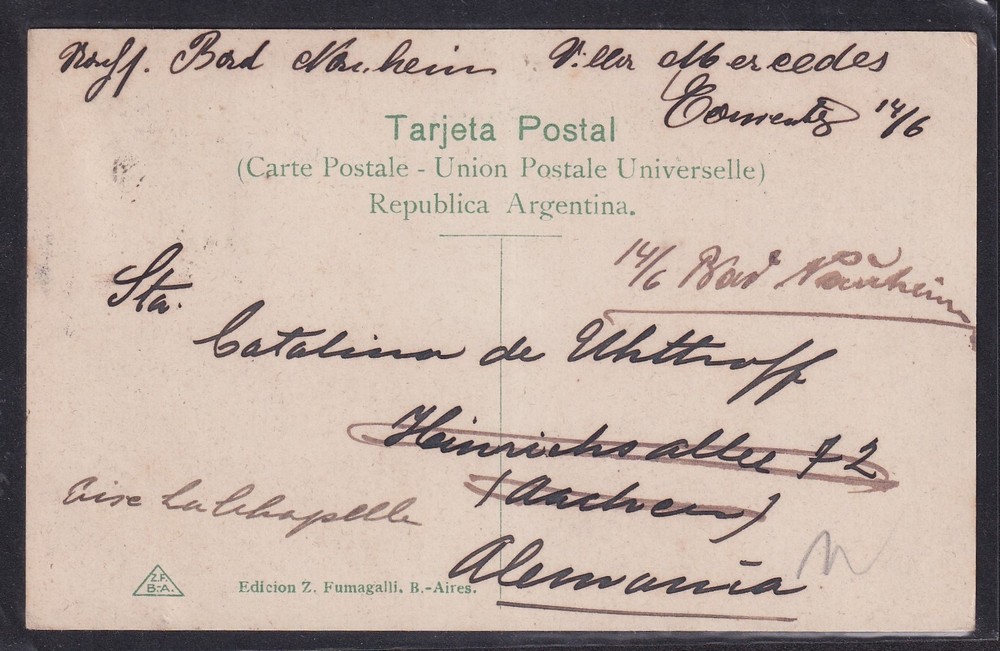 Bad Nauheim Villa Mercedes
Corrientes 14/6
Tarjeta Postal
(Carte Postale - Union Postale Universelle)
Republica Argentina.
14/6 Bad Nauheim
Sta.
Catalina de Uhttroff
Heinrichsallee 72
(Aachen)
Aixe La Chapelle
Alemania
Z.F.
B.-A.
Edicion Z. Fumagalli. B.-Aires.